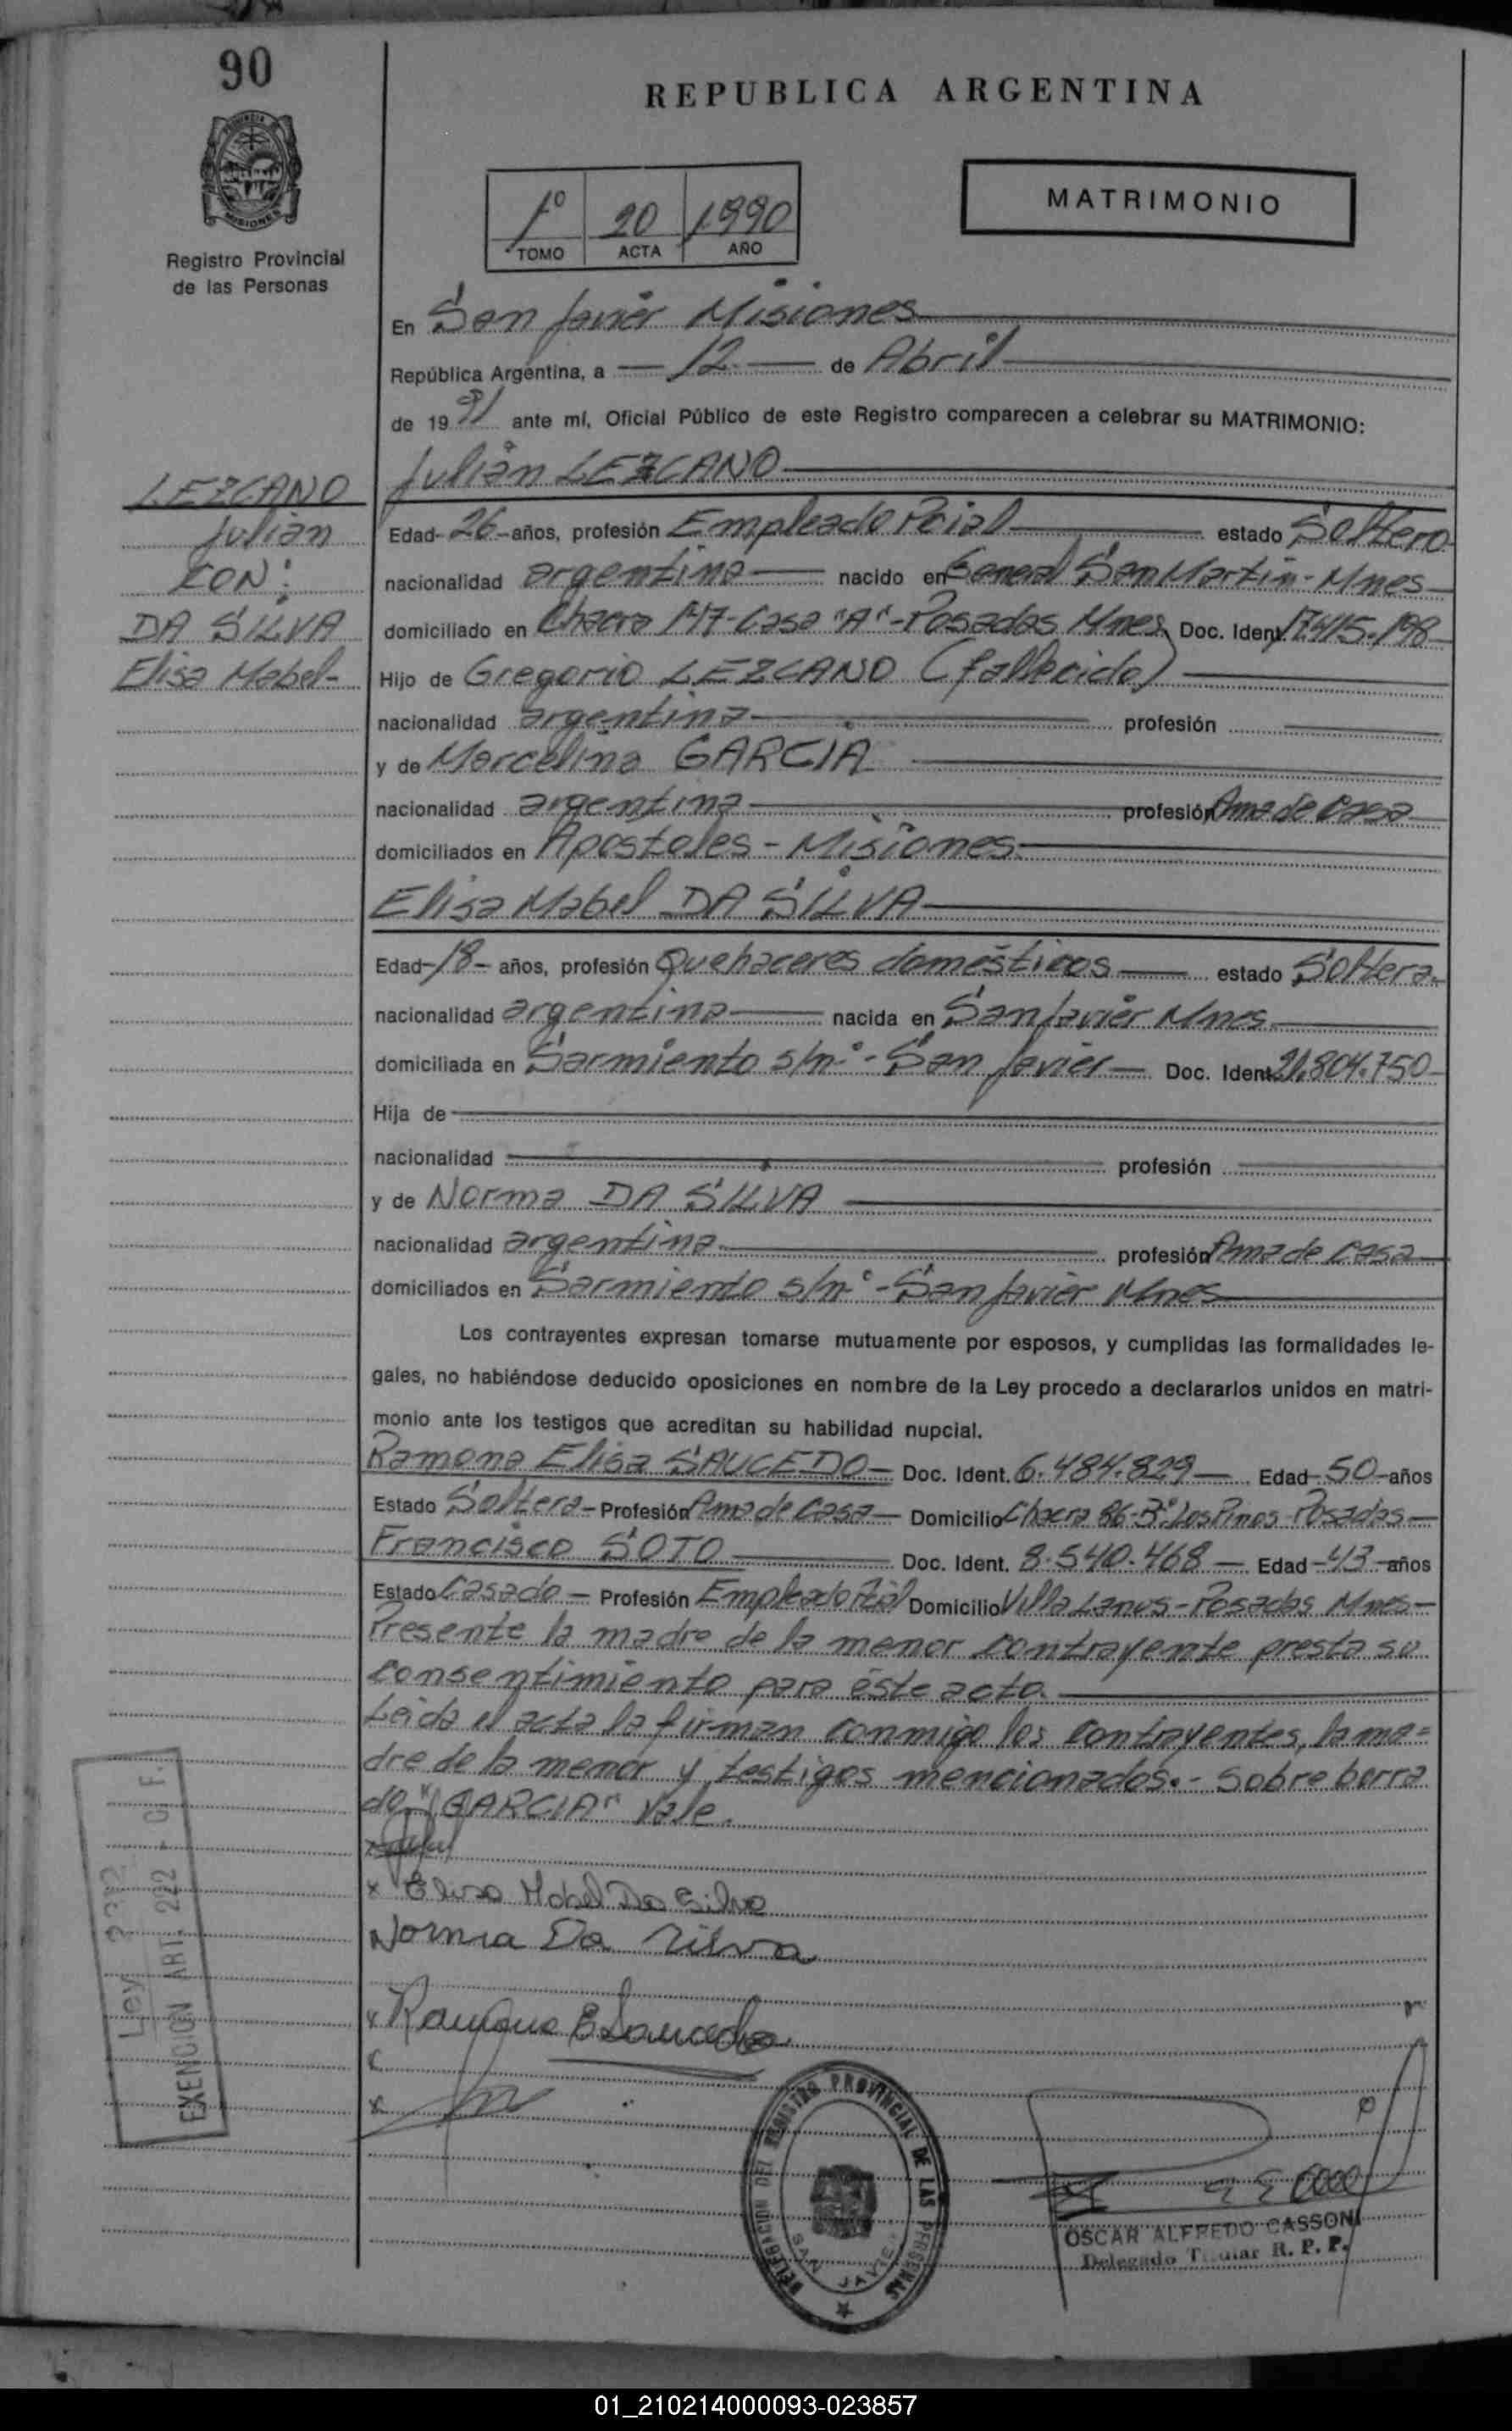 90
REPUBLICA ARGENTINA
PROVINCIA
MISIONES
1º 20 1990
TOMO ACTA AÑO
MATRIMONIO
Registro Provincial
de las Personas
En San Javier Misiones
República Argentina, a — 12 — de Abril
de 1991 ante mí, Oficial Público de este Registro comparecen a celebrar su MATRIMONIO:
LEZCANO
Julián
CON:
DA SILVA
Elisa Mabel-
Julián LEZCANO
Edad- 26 -años, profesión Empleado Pcial estado Soltero
nacionalidad argentina nacido en General San Martín - Mnes
domiciliado en Chacra 147-Casa "A"-Posadas Mnes Doc. Ident. 17.415.198
Hijo de Gregorio LEZCANO (fallecido)
nacionalidad argentina profesión
y de Marcelina GARCIA
nacionalidad argentina profesión Ama de Casa
domiciliados en Apostoles - Misiones
Elisa Mabel DA SILVA
Edad- 18 - años, profesión Quehaceres domésticos estado Soltera
nacionalidad argentina nacida en San Javier Mnes
domiciliada en Sarmiento s/nº - San Javier Doc. Ident. 21.804.750
Hija de
nacionalidad profesión
y de Norma DA SILVA
nacionalidad argentina profesión Ama de casa
domiciliados en Sarmiento s/nº - San Javier Mnes
Los contrayentes expresan tomarse mutuamente por esposos, y cumplidas las formalidades le-
gales, no habiéndose deducido oposiciones en nombre de la Ley procedo a declararlos unidos en matri-
monio ante los testigos que acreditan su habilidad nupcial.
Ramona Elisa SAUCEDO Doc. Ident. 6.484.829 Edad 50 años
Estado Soltera - Profesión Ama de casa Domicilio Chacra 86-Bº Los Pinos-Posadas
Francisco SOTO Doc. Ident. 8.540.468 Edad 43 años
Estado Casado - Profesión Empleado Pcial Domicilio Villa Lanus - Posadas Mnes
Presente la madre de la menor contrayente presta su
consentimiento para éste acto.
Leida el acta la firman conmigo los contrayentes, la ma=
dre de la menor y testigos mencionados.- Sobre borra
do "GARCIA" Vale.
x Elisa Mabel Da Silva
Norma Da Silva
x Ramona E Saucedo
x
Ley
EXENCION ART. 222 - C.F.
DELEGACION DEL REGISTRO PROVINCIAL DE LAS PERSONAS
SAN JAVIER
OSCAR ALFREDO CASSONI
Delegado Titular R. P. P.
01_210214000093-023857